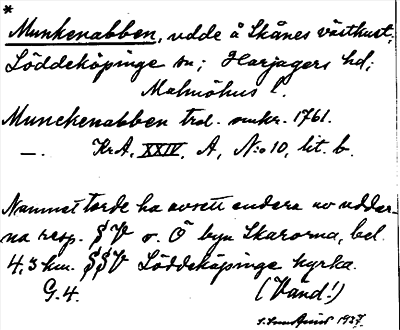 *
Munkenabben, udde å Skånes västkust;
Löddeköpinge sn; Harjagers hd;
Malmöhus l.
Munckenabben trol. omkr. 1761.
—. KrA, XXIV, A, N:o 10, lit. b.
Namnet torde ha avsett endera av uddar-
na resp. SV o. Ö byn Skarorna, bel.
4,3 km. SSV Löddeköpinge kyrka.
G. 4. (Vänd!)
1937.